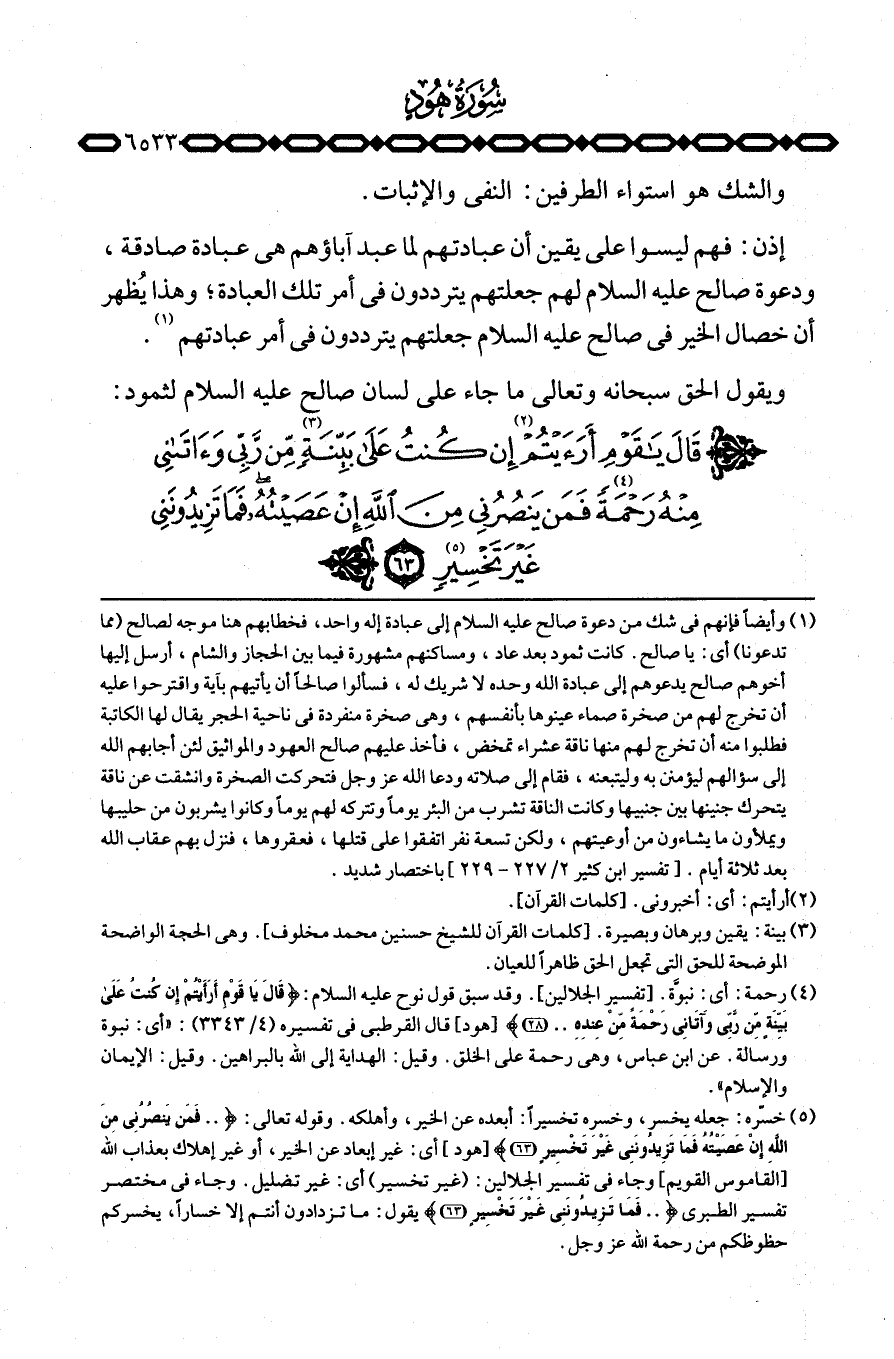 سُورَةُ هُودٍ
٦٥٣٣
والشك هو استواء الطرفين : النفى والإثبات .
إذن : فهم ليسوا على يقين أن عبادتهم لما عبد آباؤهم هى عبادة صادقة ،
ودعوة صالح عليه السلام لهم جعلتهم يترددون فى أمر تلك العبادة؛ وهذا يُظهر
أن خصال الخير فى صالح عليه السلام جعلتهم يترددون فى أمر عبادتهم (١) .
ويقول الحق سبحانه وتعالى ما جاء على لسان صالح عليه السلام لثمود :
قَالَ يَٰقَوْمِ أَرَءَيْتُمْ (٢) إِن كُنتُ عَلَىٰ بَيِّنَةٍ (٣) مِّن رَّبِّى وَءَاتَىٰنِى
مِنْهُ رَحْمَةً (٤) فَمَن يَنصُرُنِى مِنَ ٱللَّهِ إِنْ عَصَيْتُهُۥ فَمَا تَزِيدُونَنِى
غَيْرَ تَخْسِيرٍ (٥) ٦٣
(١) وأيضاً فإنهم فى شك من دعوة صالح عليه السلام إلى عبادة إله واحد، فخطابهم هنا موجه لصالح (مما
تدعونا) أى : يا صالح . كانت ثمود بعد عاد ، ومساكنهم مشهورة فيما بين الحجاز والشام ، أرسل إليها
أخوهم صالح يدعوهم إلى عبادة الله وحده لا شريك له ، فسألوا صالحاً أن يأتيهم بآية واقترحوا عليه
أن تخرج لهم من صخرة صماء عينوها بأنفسهم ، وهى صخرة منفردة فى ناحية الحجر يقال لها الكاتبة
فطلبوا منه أن تخرج لهم منها ناقة عشراء تمخض ، فأخذ عليهم صالح العهود والمواثيق لئن أجابهم الله
إلى سؤالهم ليؤمنن به وليتبعنه ، فقام إلى صلاته ودعا الله عز وجل فتحركت الصخرة وانشقت عن ناقة
يتحرك جنينها بين جنبيها وكانت الناقة تشرب من البئر يوماً وتتركه لهم يوماً وكانوا يشربون من حليبها
ويملأون ما يشاءون من أوعيتهم ، ولكن تسعة نفر اتفقوا على قتلها ، فعقروها ، فنزل بهم عقاب الله
بعد ثلاثة أيام . [ تفسير ابن كثير ٢/ ٢٢٧ - ٢٢٩ ] باختصار شديد .
(٢) أرأيتم : أى : أخبرونى . [كلمات القرآن].
(٣) بينة : يقين وبرهان وبصيرة . [كلمات القرآن للشيخ حسنين محمد مخلوف] . وهى الحجة الواضحة
الموضحة للحق التى تجعل الحق ظاهراً للعيان .
(٤) رحمة : أى : نبوَّة . [تفسير الجلالين] . وقد سبق قول نوح عليه السلام : ﴿ قَالَ يَا قَوْمِ أَرَأَيْتُمْ إِن كُنتُ عَلَىٰ
بَيِّنَةٍ مِّن رَّبِّى وَآتَانِى رَحْمَةً مِّنْ عِندِهِ .. (٢٨) ﴾ [هود] قال القرطبى فى تفسيره (٤/ ٣٣٤٣) : «أى : نبوة
ورسالة . عن ابن عباس، وهى رحمة على الخلق . وقيل : الهداية إلى الله بالبراهين . وقيل : الإيمان
والإسلام» .
(٥) خسّره : جعله يخسر ، وخسره تخسيراً : أبعده عن الخير ، وأهلكه . وقوله تعالى : ﴿ .. فَمَن يَنصُرُنِى مِنَ
اللَّهِ إِنْ عَصَيْتُهُ فَمَا تَزِيدُونَنِى غَيْرَ تَخْسِيرٍ (٦٣) ﴾ [هود ] أى : غير إبعاد عن الخير ، أو غير إهلاك بعذاب الله
[القاموس القويم] وجاء فى تفسير الجلالين : (غير تخسير) أى : غير تضليل . وجاء فى مختصر
تفسير الطبرى ﴿ .. فَمَا تَزِيدُونَنِى غَيْرَ تَخْسِيرٍ (٦٣) ﴾ يقول : ما تزدادون أنتم إلا خساراً، يخسركم
حظوظكم من رحمة الله عز وجل .